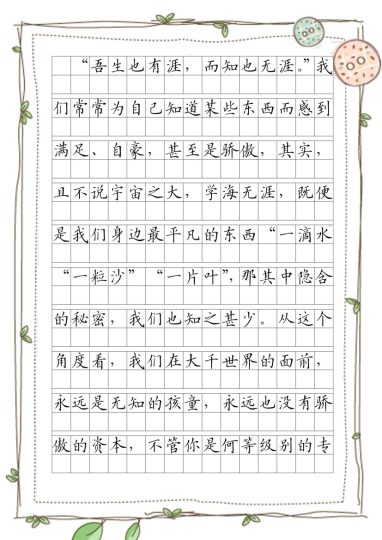 “吾生也有涯，而知也无涯。”我
们常常为自己知道某些东西而感到
满足、自豪，甚至是骄傲，其实，
且不说宇宙之大，学海无涯，既便
是我们身边最平凡的东西“一滴水
“一粒沙”“一片叶”，那其中隐含
的秘密，我们也知之甚少。从这个
角度看，我们在大千世界的面前，
永远是无知的孩童，永远也没有骄
傲的资本，不管你是何等级别的专